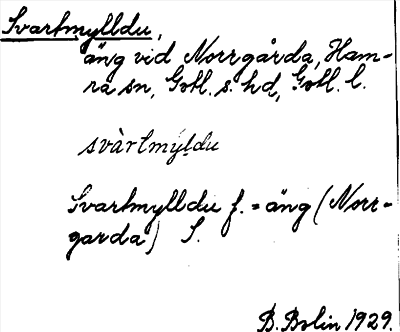 Svartmylldu,
äng vid Norrgårda, Ham-
ra sn, Gotl. s. hd, Gotl. l.
svàrtmýldu
Svartmylldu f. = äng (Norr-
garda) S.
B. Bolin 1929.